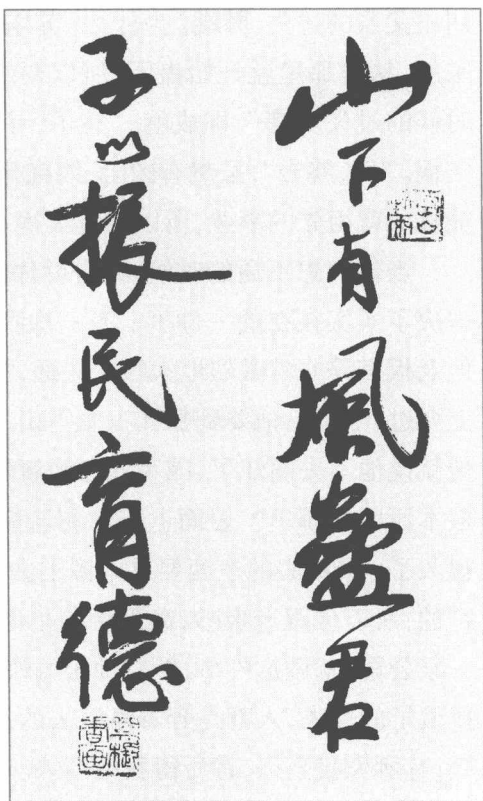 山下有風蠱君
子以振民育德